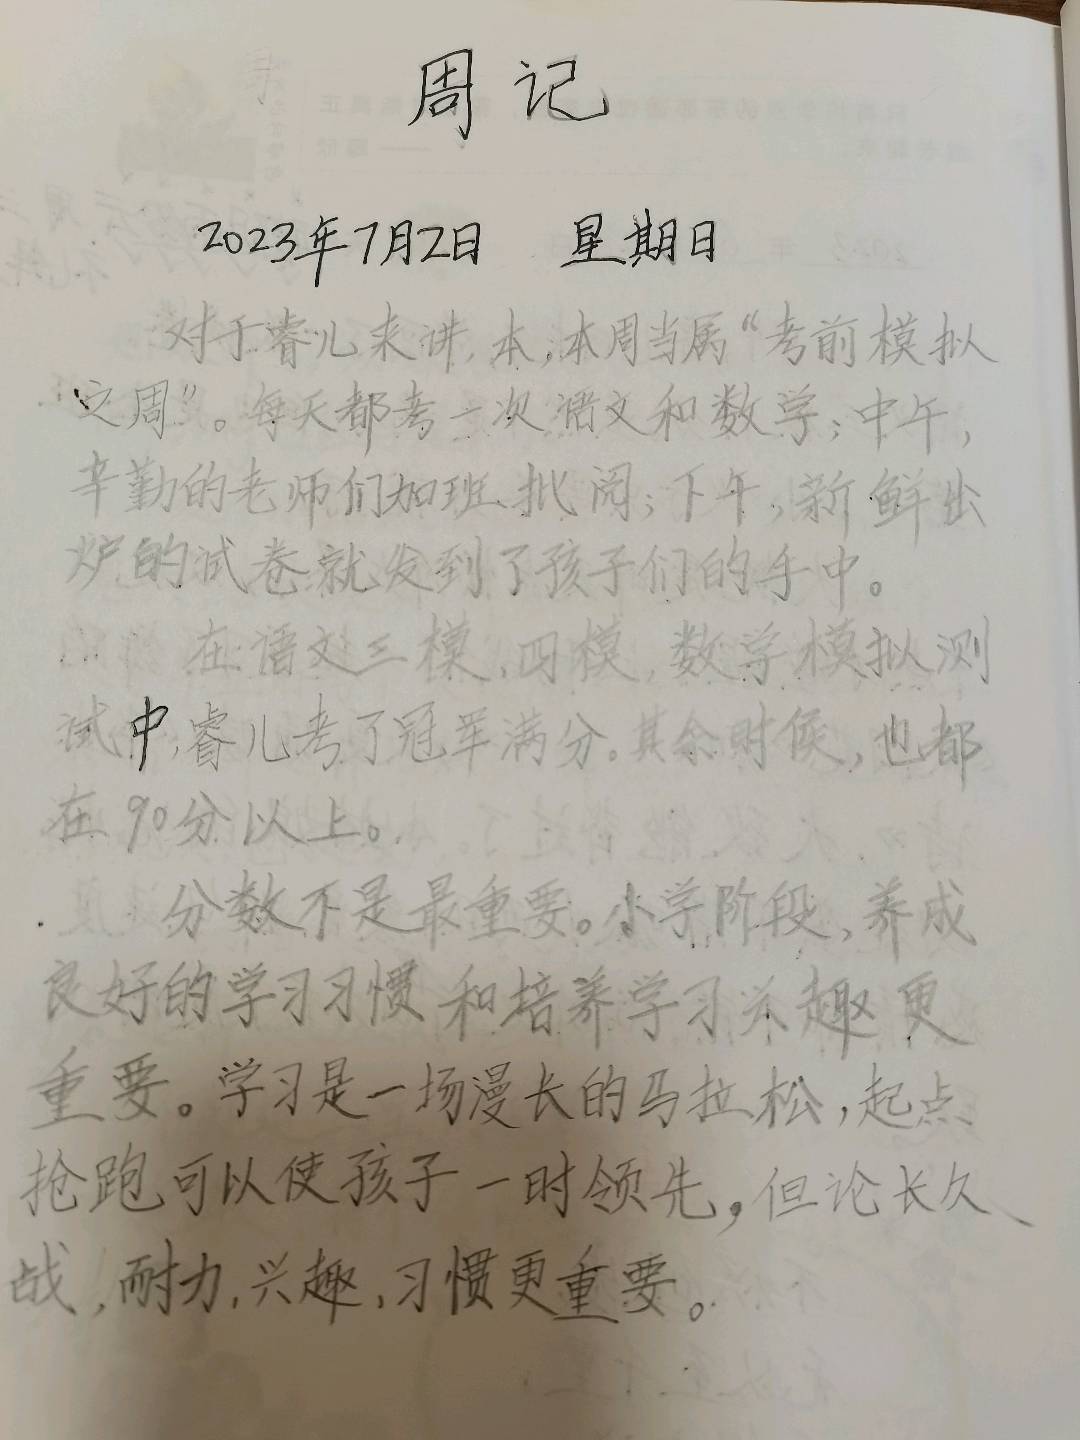 周记
2023年7月2日 星期日
对于睿儿来讲,本,本周当属“考前模拟
之周”。每天都考一次语文和数学;中午,
辛勤的老师们加班批阅;下午,新鲜出
炉的试卷就发到了孩子们的手中。
在语文三模,四模,数学模拟测
试中,睿儿考了冠军满分。其余时候,也都
在90分以上。
分数不是最重要。小学阶段,养成
良好的学习习惯和培养学习兴趣更
重要。学习是一场漫长的马拉松,起点
抢跑可以使孩子一时领先,但论长久
战,耐力,兴趣,习惯更重要。